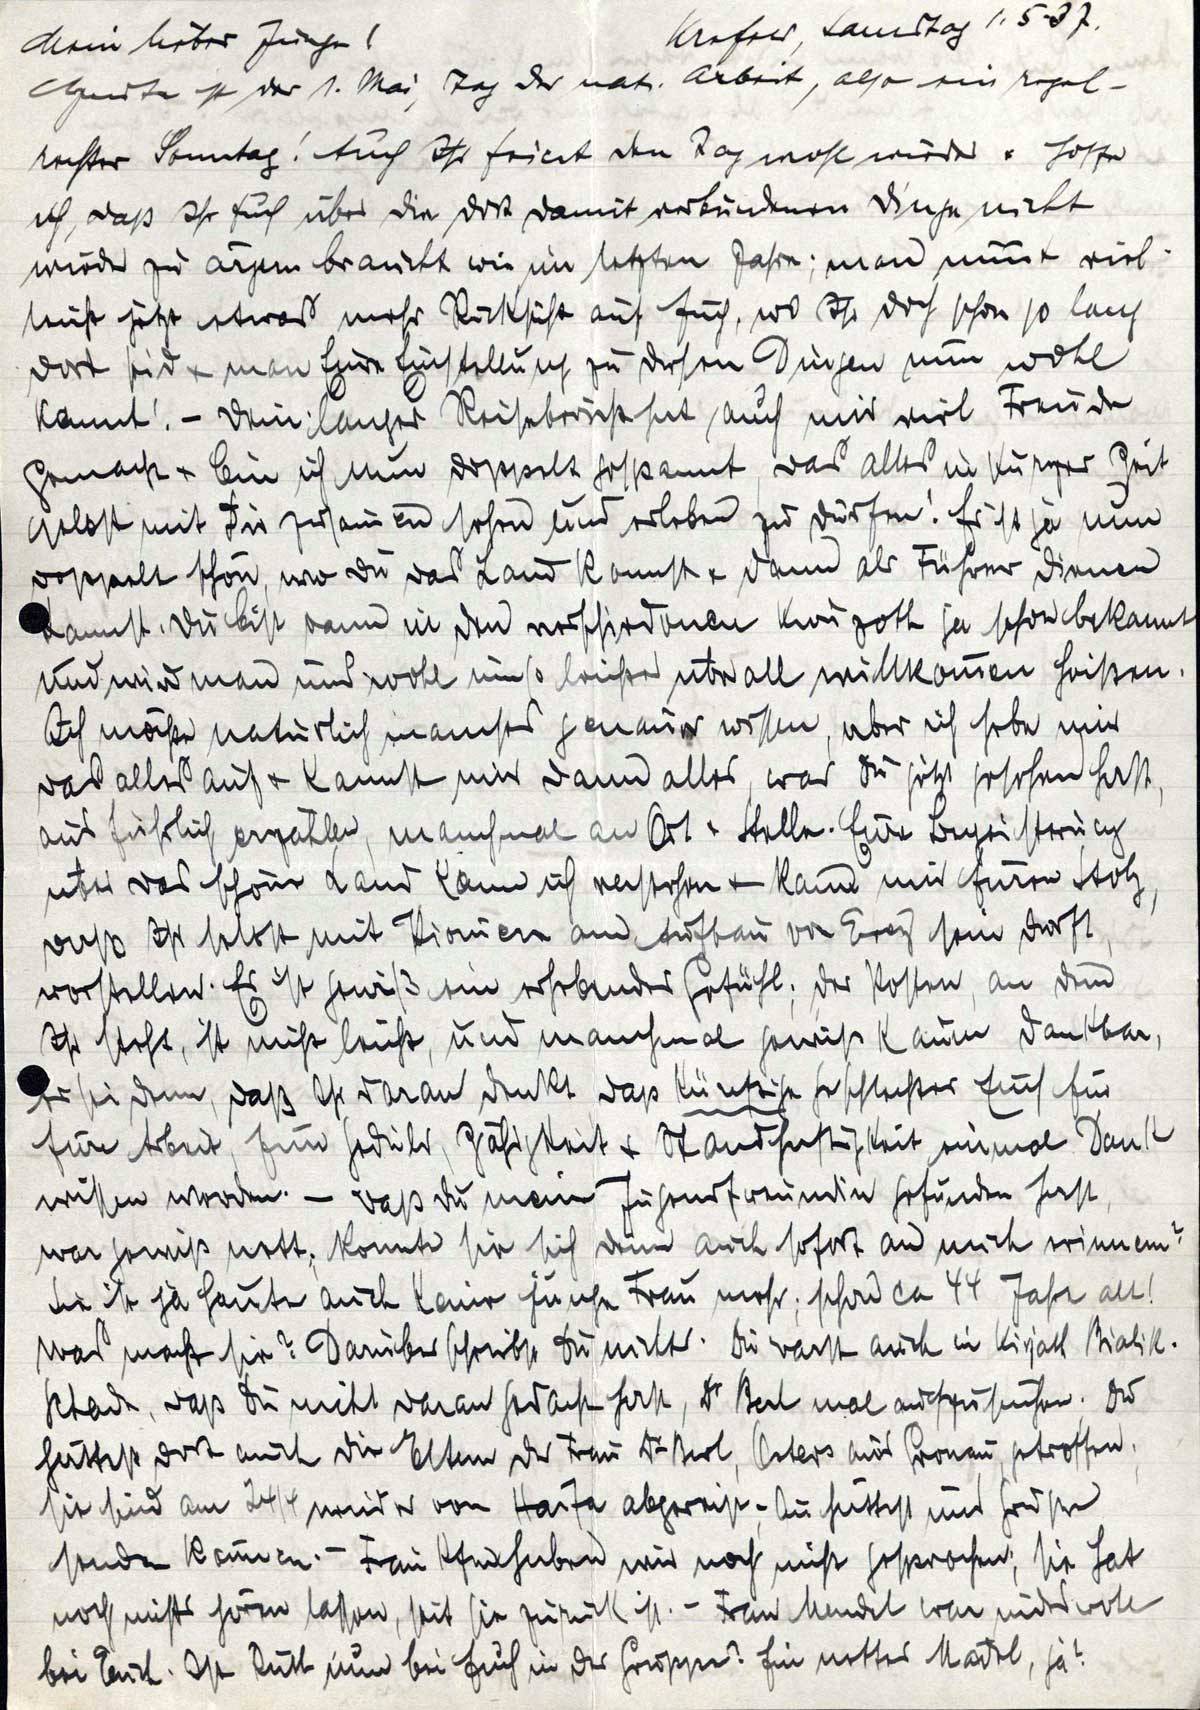 Mein lieber Junge! Krefeld, Samstag 1.5.37.
Heute ist der 1. Mai, Tag der nat. Arbeit, also ein regel-
rechter Sonntag! Auch Ihr feiert den Tag wohl wieder + hoffe
ich, daß Ihr Euch über die dort damit verbundenen Dinge nicht
wieder zu ärgern braucht wie im letzten Jahre; man nimmt viel-
leicht jetzt etwas mehr Rücksicht auf Euch, wo Ihr doch schon so lang
dort seid + man Eure Einstellung zu diesen Dingen nun wohl
kennt! – Dein langer Reisebericht hat auch mir viel Freude
gemacht + bin ich nun doppelt gespannt, das alles in kurzer Zeit
selbst mit Dir zusammen sehen und erleben zu dürfen! Es ist ja nun
doppelt schön, wo Du das Land kennst + dann als Führer dienen
kannst. Du bist dann in den verschiedenen Kwuzoth ja schon bekannt
und wird man uns wohl umso leichter überall willkommen heißen.
Ich möchte natürlich manches genauer wissen, aber ich hebe mir
das alles auf + kannst mir dann alles, was Du jetzt gesehen hast,
ausführlich erzählen, manchmal an Ort + Stelle. Eure Begeisterung
über das schöne Land kann ich verstehen + kann mir Euren Stolz,
daß Ihr selbst mit Pioniere am Aufbau von Erez sein dürft,
vorstellen. Es ist gewiß ein erhebendes Gefühl; der Posten, an dem
Ihr steht, ist nicht leicht, und manchmal gewiß kaum dankbar,
es sei denn, daß Ihr daran denkt daß künftige Geschlechter Euch für
Eure Arbeit, Eure Geduld, Zähigkeit + Standhaftigkeit einmal Dank
wissen werden. – Daß Du meine Jugendfreundin gefunden hast,
war gewiß nett; konnte sie sich denn auch sofort an mich erinnern?
Sie ist ja heute auch keine junge Frau mehr; schon ca 44 Jahre alt!
Was macht sie? Darüber schreibst Du nichts. Du warst auch in Kirjath Bialik.
Schade, daß Du nicht daran gedacht hast, Dr Berl mal aufzusuchen. Du
hättest dort auch die Eltern der Frau Dr Berl, Osters aus Gronau, getroffen,
sie sind am 24/4 wieder von Haifa abgereist. Du hättest uns Grüße
senden können. – Frau haben wir noch nicht gesprochen; sie hat
noch nichts hören lassen, seit sie zurück ist. – Frau Mendel war wohl
bei Euch. Ist Ruth nun bei Euch in der Gruppe? Ein nettes Mädel, ja?